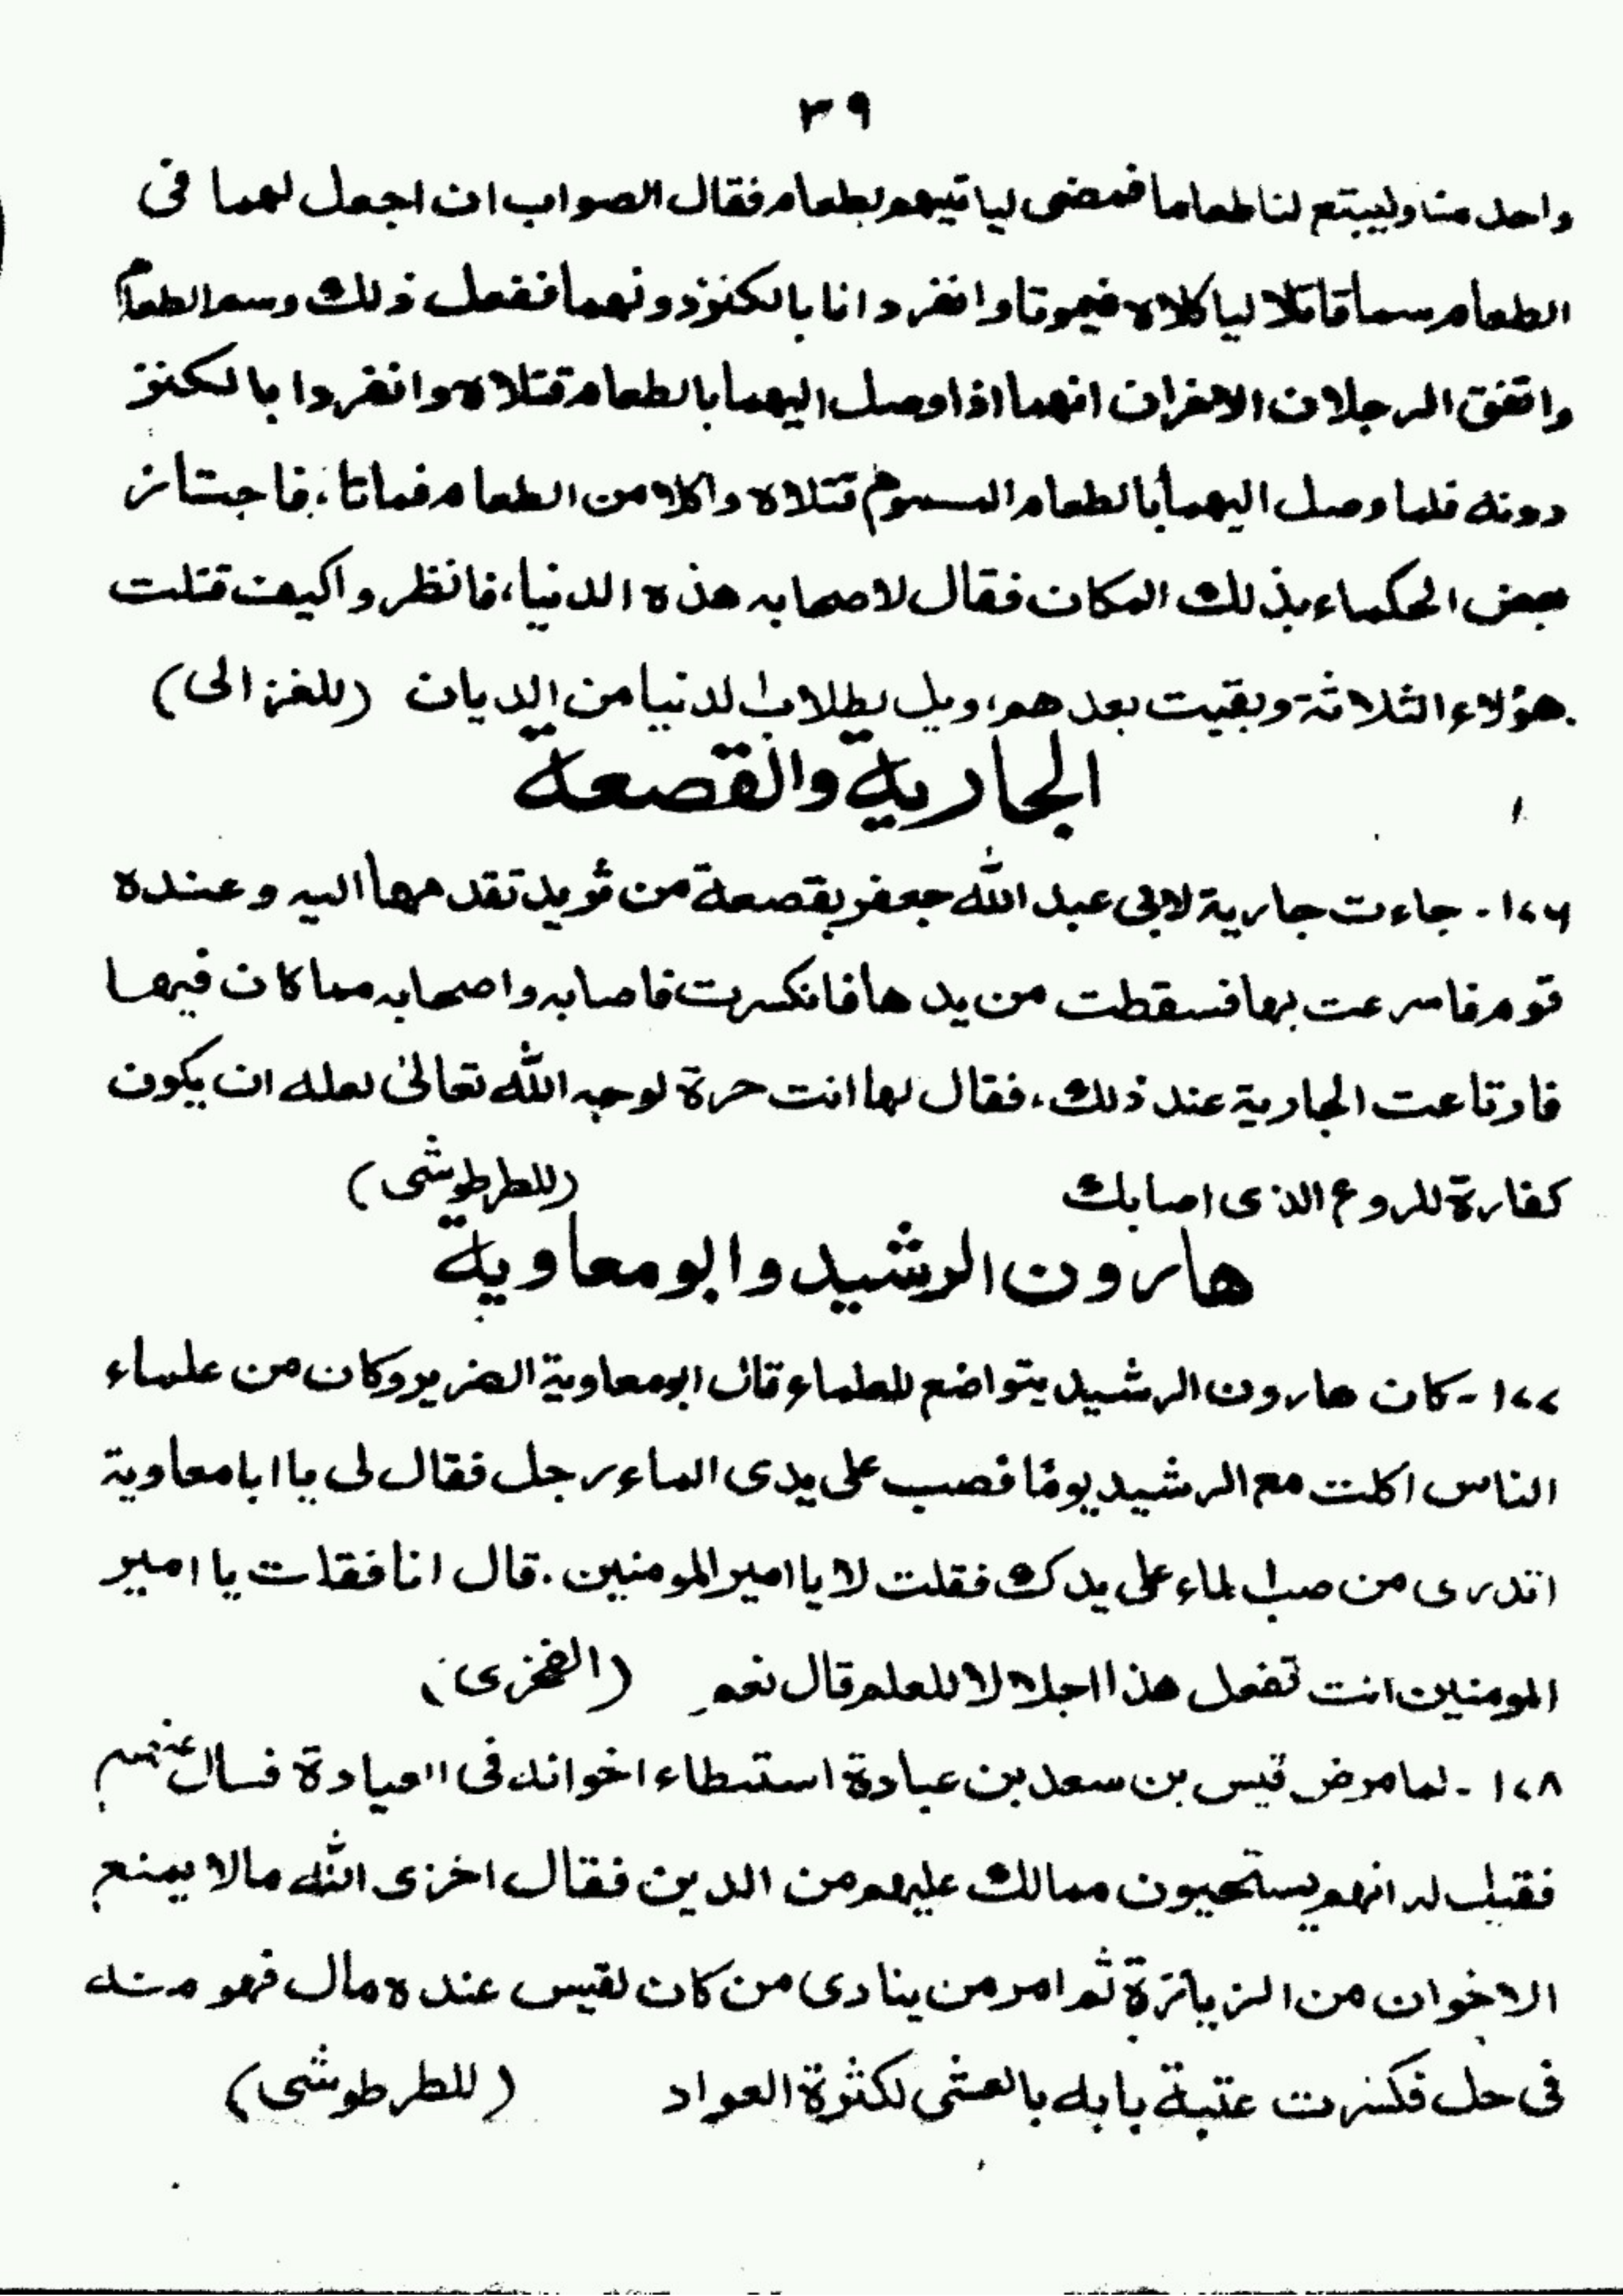 ٣٩
واحد منا وليبتع لنا طعاما فمضى لياتيهم بطعام فقال الصواب ان اجعل لهما فى
الطعام سما قاتلا لياكلاه فيموتا وانفرد انا بالكنز دونهما ففعل ذلك وسم الطعام
واتفق الرجلان الاخران انهما اذا وصل اليهما بالطعام قتلاه وانفردا بالكنز
دونه فلما وصل اليهما بالطعام المسموم قتلاه واكلا من الطعام فماتا، فاجتاز
بعض الحكماء بذلك المكان فقال لاصحابه هذه الدنيا، فانظروا كيف قتلت
هؤلاء الثلاثة وبقيت بعدهم، ويل لطلاب الدنيا من الديان (للغزالى)
الجارية والقصعة
١٧٦- جاءت جارية لابى عبد الله جعفر بقصعة من ثريد تقدمها اليه وعنده
قوم فاسرعت بها فسقطت من يدها فانكسرت فاصابه واصحابه مما كان فيها
فارتاعت الجارية عند ذلك، فقال لها انت حرة لوجه الله تعالىٰ لعله ان يكون
كفارة للروع الذى اصابك (للطرطوشى)
هارون الرشيد وابو معاوية
١٧٧- كان هارون الرشيد يتواضع للعلماء قال ابو معاوية الضرير وكان من علماء
الناس اكلت مع الرشيد يومًا فصب على يدى الماء رجل فقال لى يا ابا معاوية
اتدرى من صب الماء على يدك فقلت لا يا امير المومنين. قال انا فقلت يا امير
المومنين انت تفعل هذا اجلالا للعلم قال نعم (الفخرى)
١٧٨- لما مرض قيس بن سعد بن عبادة استبطاء اخوانه فى العيادة فسال عنهم
فقيل له انهم يستحيون ممالك عليهم من الدين فقال اخزى الله مالا يمنع
الاخوان من الزيارة ثم امر من ينادى من كان لقيس عنده مال فهو منه
فى حل فكسرت عتبة بابه بالعشى لكثرة العواد (للطرطوشى)